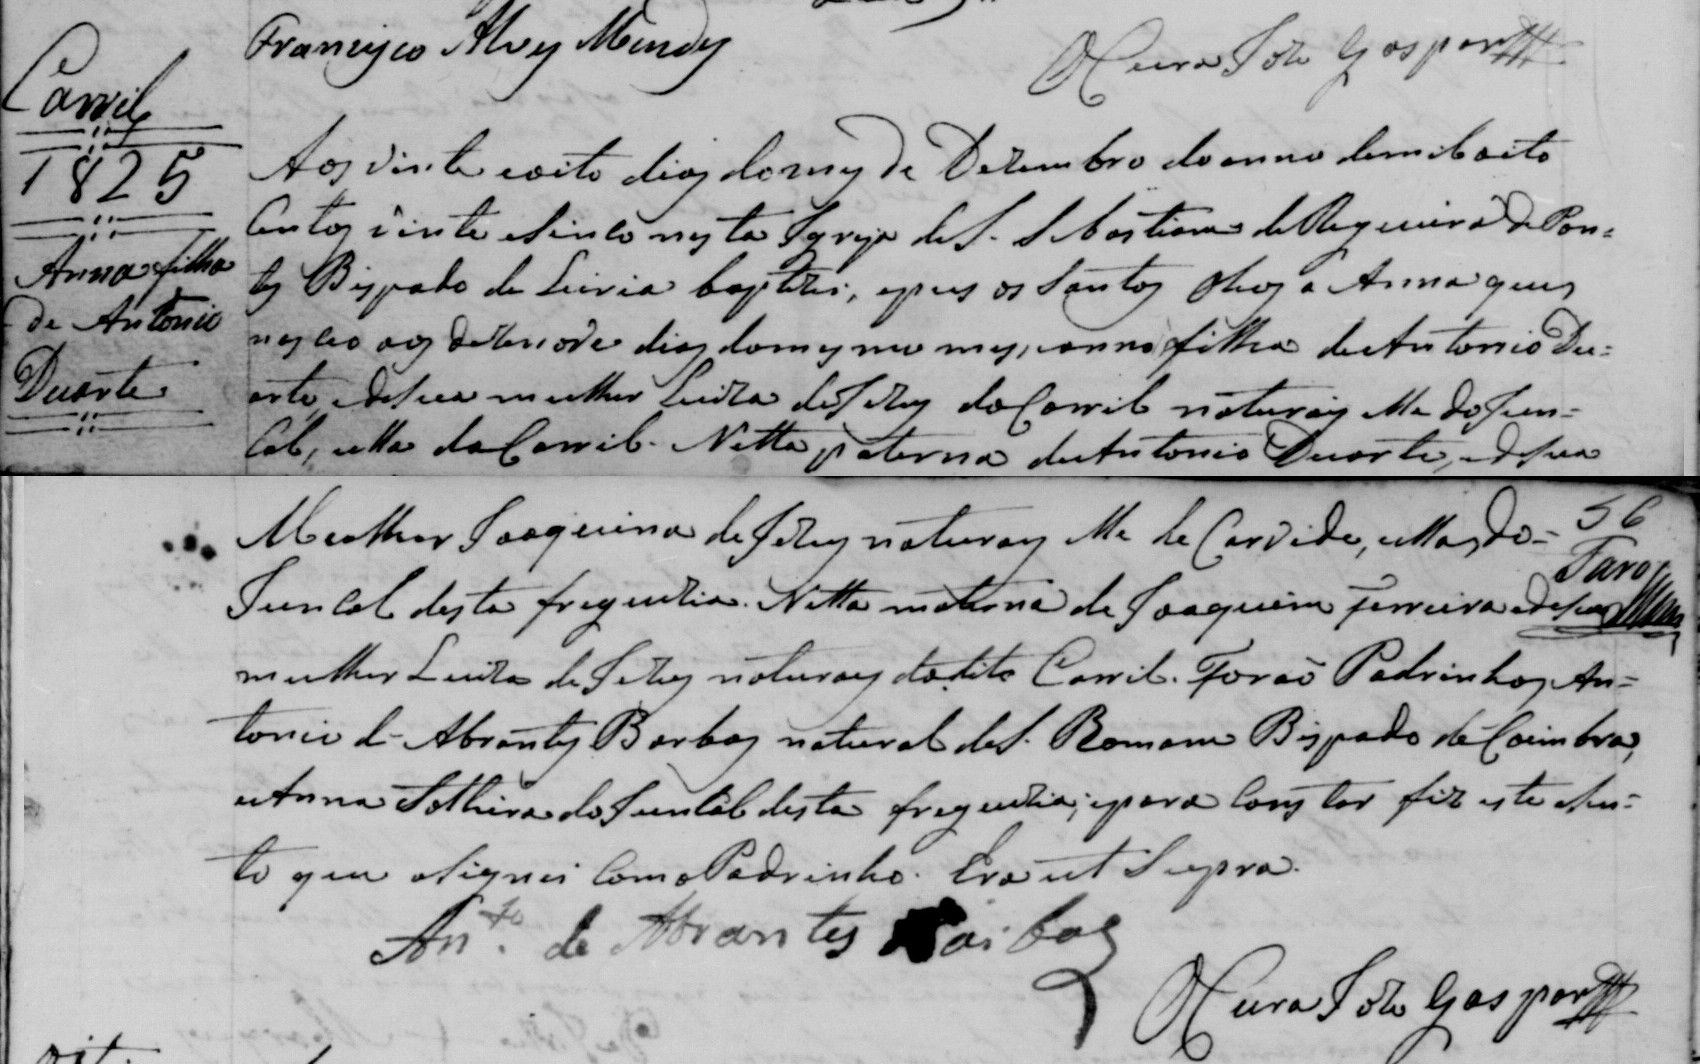 Francisco Alves Mendes
O Cura Joze Gaspar
Carril
1825
Anna filha
de Antonio
Duarte
Aos vinte eoito dias domes de Dezembro doanno demiloito
Centos vinte esinco nesta Igreja de S. Sebastiam de Regueira de Pon=
tes Bispado de Leiria baptizei, epus os Santos Oleos a Anna que
nasceo aos dezenove dias domesmo mes, eanno filha deAntonio Du=
arte, edesua mulher Luiza deJezus doCarril naturais elle doJun=
cal, ella doCarril. Netta paterna deAntonio Duarte, edesua
Mulher Joaquina deJezus naturais elle de Carvide, ella do=
56
Faro
Juncal desta freguezia. Netta materna de Joaquim Ferreira edesua
mulher Luiza de Jezus naturais dodito Carril. Foraõ Padrinhos An=
tonio de Abrantes Barbas natural deS. Romam Bispado de Coimbra,
eAnna Solteira doJuncal desta freguezia; epara constar fiz este asen=
to que asignei comoPadrinho. Era ut Supra.
Anto. de Abrantes Barbas
O Cura Joze Gaspar